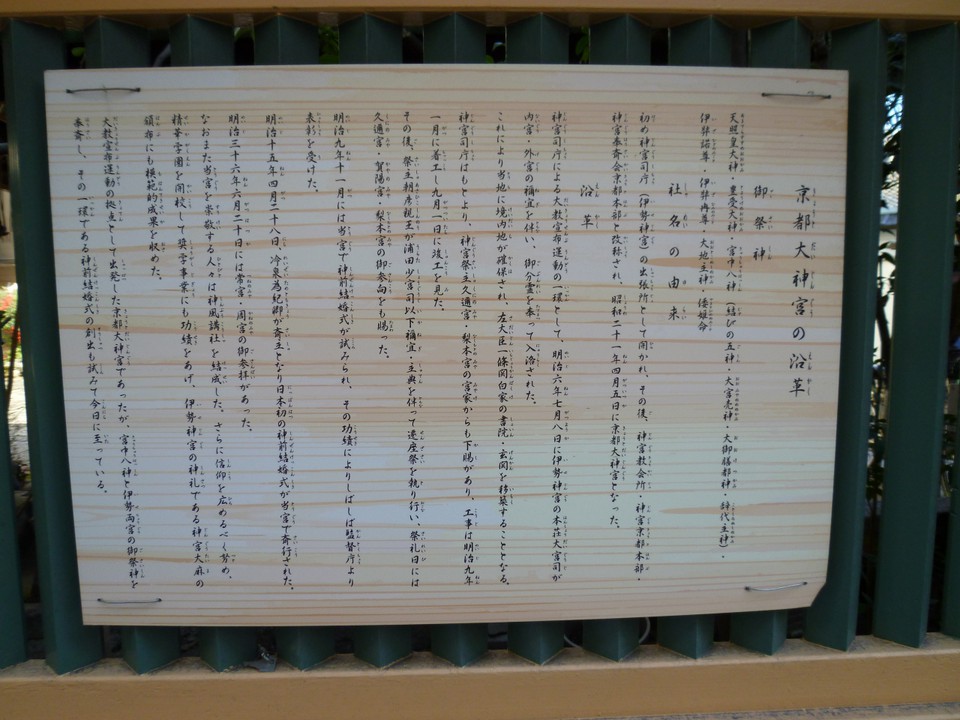 京都大神宮の沿革
御祭神
天照皇大神・豊受大神・宮中八神（結びの五神・大宮売神・大御膳都神・辞代主神）、
伊弉諾尊・伊弉冉尊・大地主神・倭姫命
社名の由来
初め神宮司庁（伊勢神宮）の出張所として開かれ、その後、神宮教会所・神宮京都本部・
神宮奉斎会京都本部と改称され、昭和二十一年四月五日に京都大神宮となった。
沿革
神宮司庁による大教宣布運動の一環として、明治六年七月八日に伊勢神宮の本荘大宮司が
内宮・外宮の禰宜を伴い、御分霊を奉って入洛された。
これにより当地に境内地が確保され、左大臣一條関白家の書院・玄関を移築することとなる。
神宮司庁はもとより、神宮祭主久邇宮・梨本宮の宮家からも下賜があり、工事は明治九年
一月に着工し九月一日に竣工を見た。
その後、祭主朝彦親王が浦田少宮司以下禰宜・主典を伴って遷座祭を執り行い、祭礼日には
久邇宮・賀陽宮・梨本宮の御参向をも賜った。
明治九年十一月には当宮で神前結婚式が試みられ、その功績によりしばしば監督庁より
表彰を受けた。
明治十五年四月二十八日、冷泉為紀卿が斎主となり日本初の神前結婚式が当宮で斎行された。
明治三十六年六月二十日には常宮・周宮の御参拝があった。
なおまた当宮を崇敬する人々は神風講社を結成した。さらに信仰を広めるべく努め、
精華学園を開校して奨学事業にも功績をあげ、伊勢神宮の神札である神宮大麻の
頒布にも模範的成果を収めた。
大教宣布運動の拠点として出発した京都大神宮であったが、宮中八神と伊勢両宮の御祭神を
奉斎し、その一環である神前結婚式の創出も試みて今日に至っている。